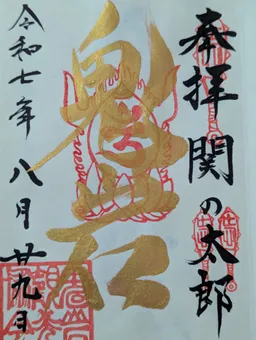 奉拝 関の太郎
鬼岩
令和七年 八月廿九日